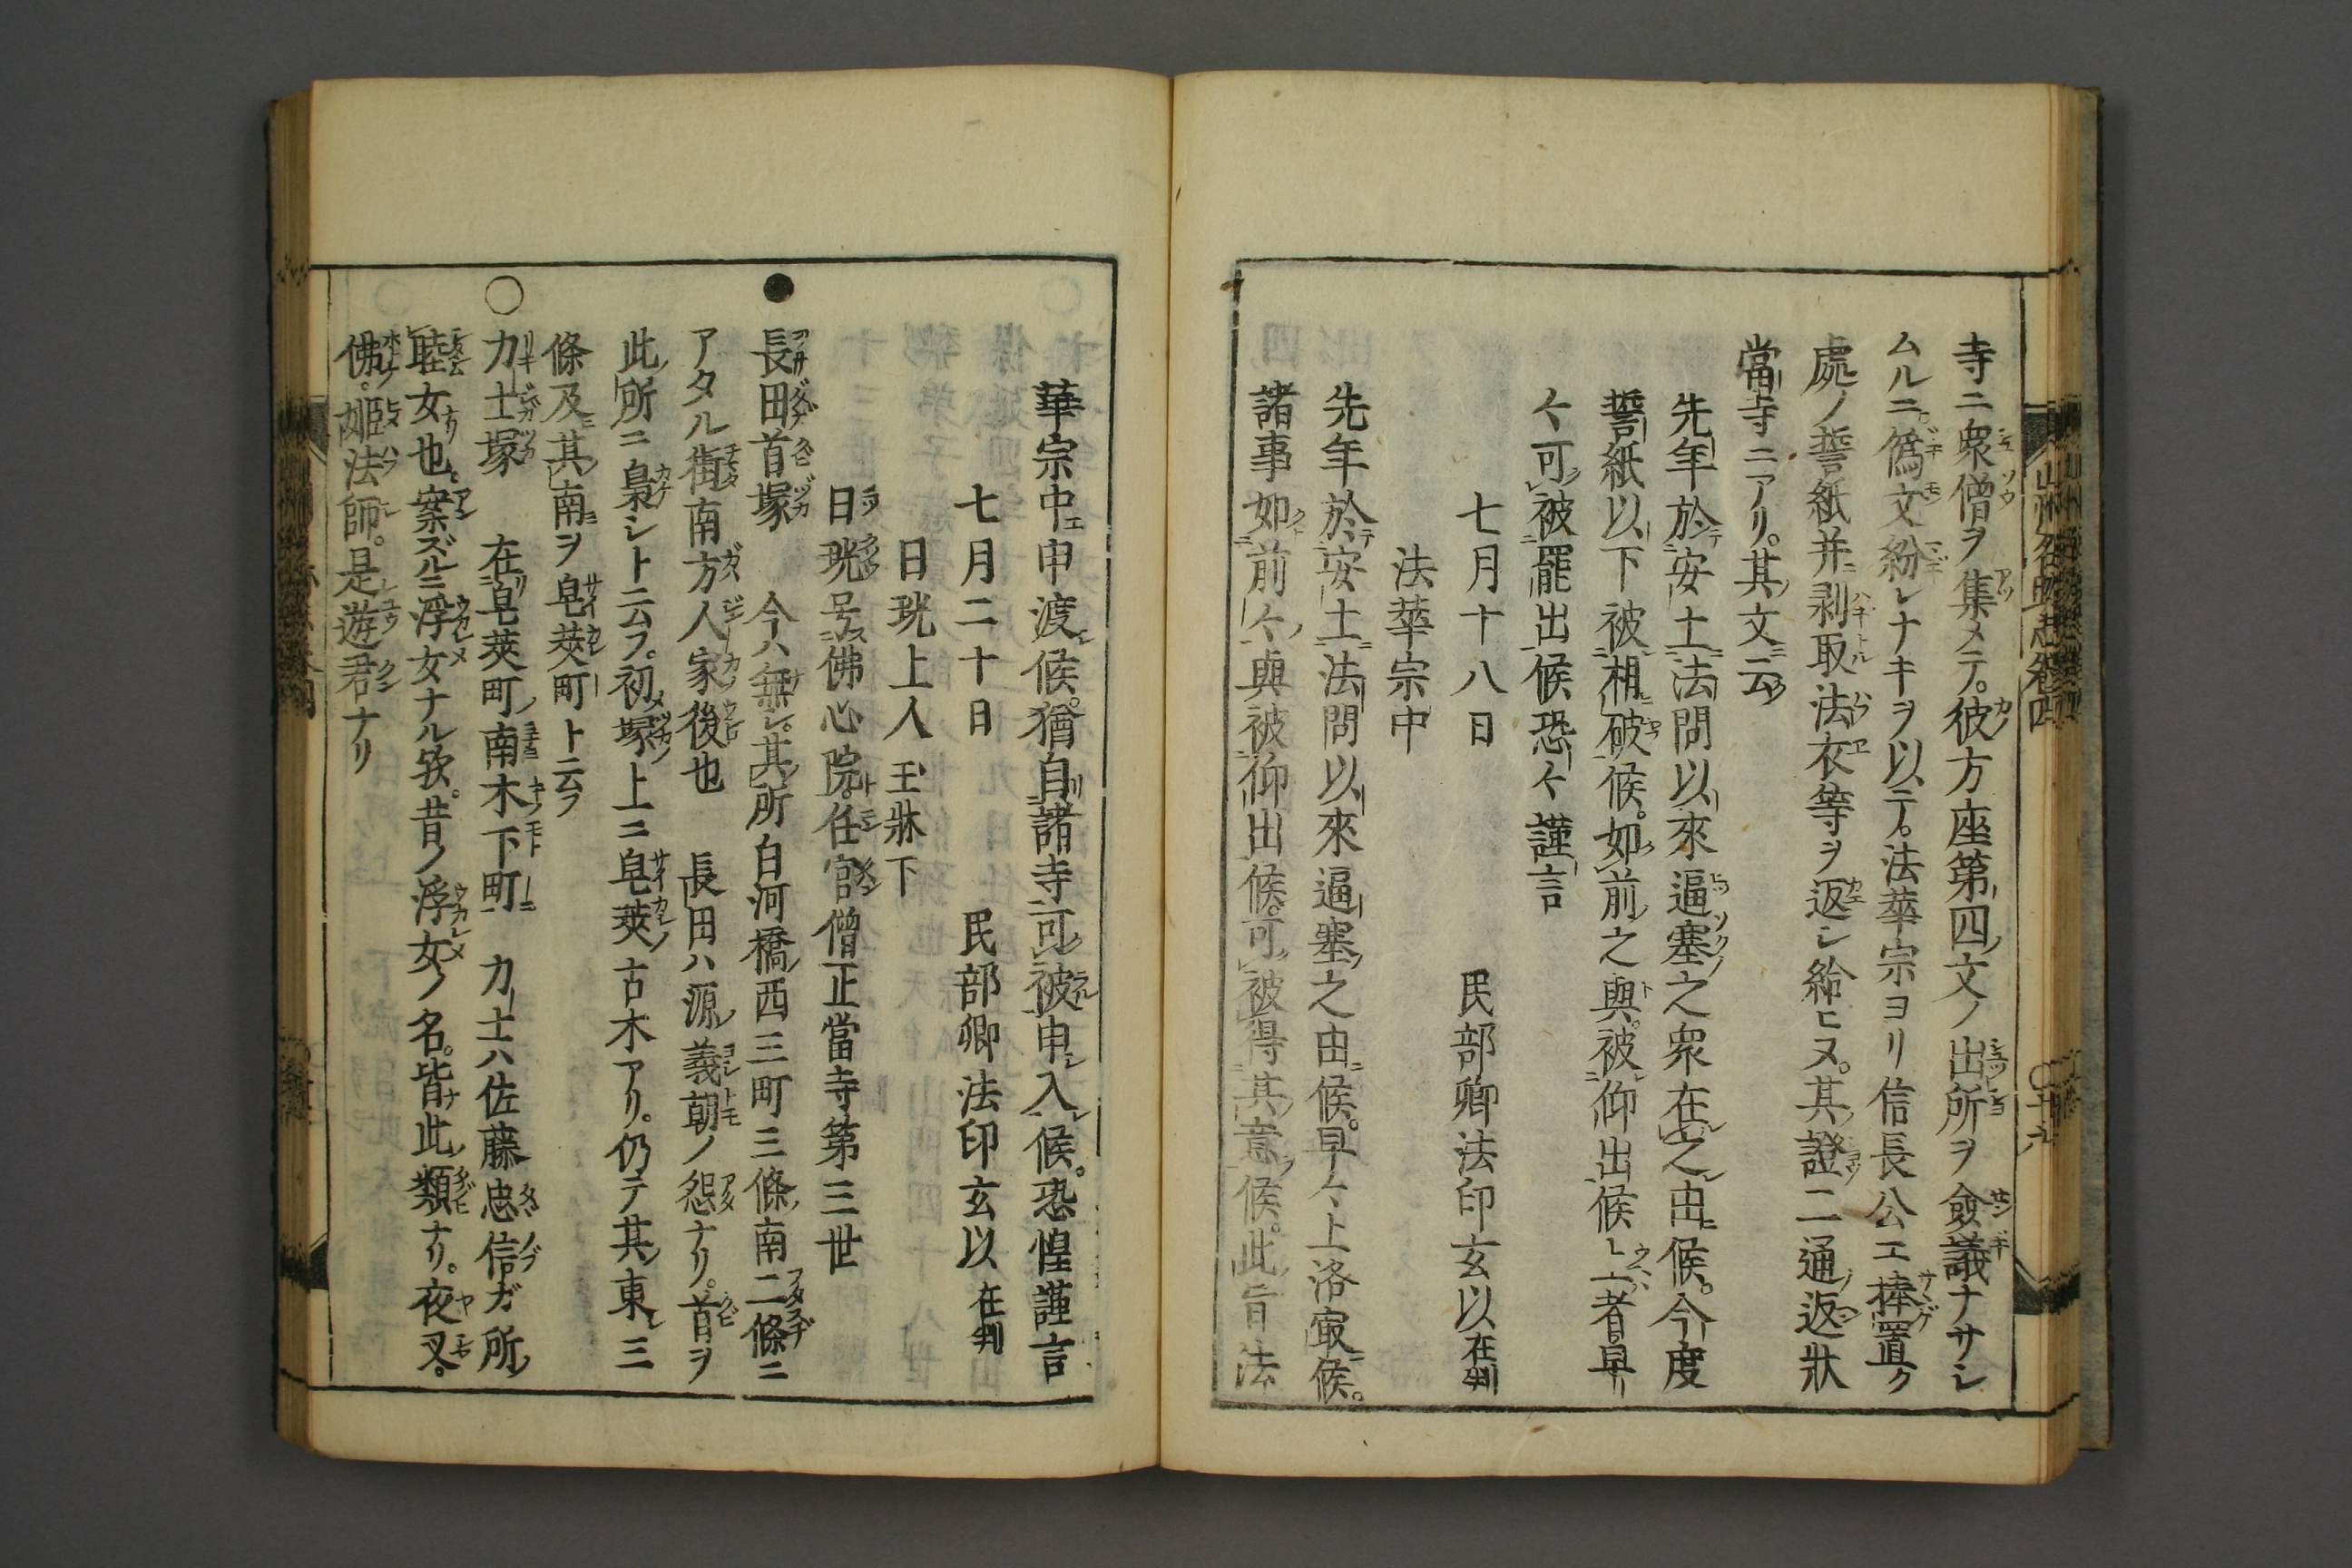 寺ニ衆僧ヲ集メテ。彼方座第四文ノ出所ヲ僉議ナサシ
ムルニ。偽文紛レナキヲ以テ。法華宗ヨリ信長公エ捧置ク
處ノ誓紙并剥取法衣等ヲ返シ給ヒヌ。其證二通返狀
當寺ニアリ。其文云
先年於安土法問以來逼塞之衆在之由候。今度
誓紙以下被相破候。如前之與被仰出候上者早
々可被罷出候恐々謹言
七月十八日　民部卿法印玄以在判
法華宗中
先年於安土法問以來逼塞之由候。早々上洛㝡候。
諸事如前々與被仰出候。可被得其意候。此旨法
華宗中エ申渡候。猶自諸寺可被申入候。恐惶謹言
七月二十日　民部卿法印玄以在判
日珖上人玉牀下
日珖号佛心院。任官僧正當寺第三世
●長田首塚　今ハ無シ。其所白河橋西三町三條南二條ニ
アタル街南方人家後也　長田ハ源義朝ノ怨ナリ。首ヲ
此所ニ梟シト云フ。初塚上ニ皂莢古木アリ。仍テ其東三
條及其南ヲ皂莢町ト云フ
○力士塚　在皂莢町南木下町　力士ハ佐藤忠信ガ所
睦女也。案ズルニ浮女ナル欤。昔ノ浮女ノ名。皆此類ナリ。夜叉。
佛。姫法師。是遊君ナリ
山州名跡志卷四